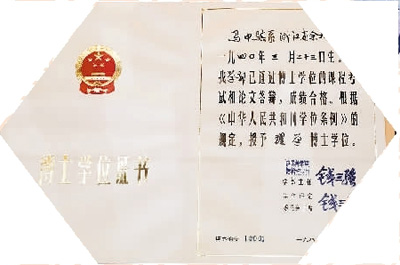 博士学位证书
马中骐系浙江省余
一九四〇年三月二十三日生。
我学部已通过博士学位的课程考
试和论文答辩，成绩合格。根据
《中华人民共和国学位条例》的
规定，授予理学博士学位。
钱三强
钱三
证书编号 10001